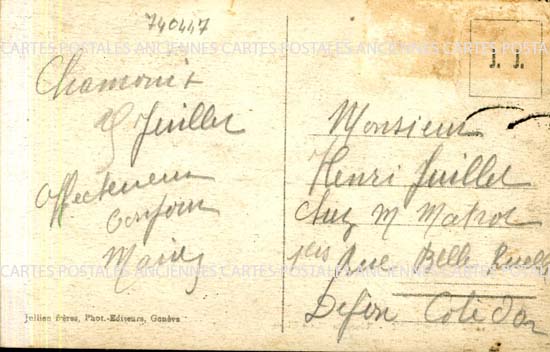 740447
CARTES POSTALES ANCIENNES CARTES POSTALES ANCIENNES CARTES POSTALES ANCIENNES
J. J.
Chamonix
Juillet
Affectueux
bonjour
CARTES POSTALES ANCIENNES CARTES POSTALES ANCIENNES CARTES POSTALES ANCIENNES
Jullien frères, Phot.-Editeurs, Genève
Monsieur
Henri Juillet
Chez M
Rue Belle Ruelle
Côte d'or